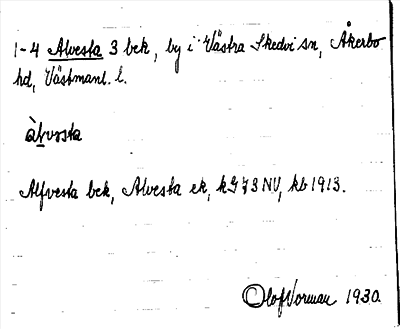 1-4 Alvesta 3 bek, by i Västra Skedvi sn, Åkerbo
hd, Västmanl. l.
àlvəsta
Alfvesta bek, Alvesta ek, k G 73 NV, kb 1913.
Olof Vorman 1930.